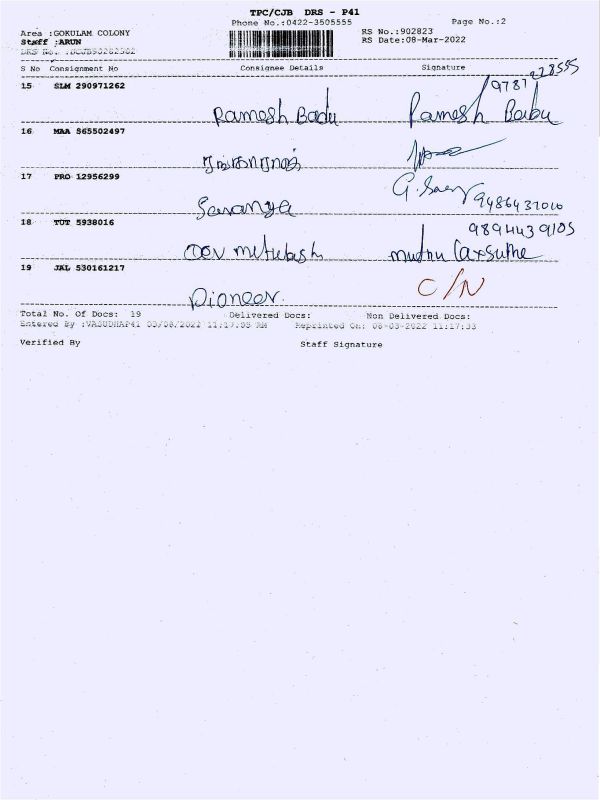 TPC/CJB DRS - P41
Phone No.:0422-3505555 Page No.:2
Area :GOKULAM COLONY RS No.:902823
Staff :ARUN RS Date:08-Mar-2022
DRS No.
S No Consignment No Consignee Details Signature
15 SLM 290971262 Ramesh Babu Ramesh Babu 9787
16 MAA 565502497
17 PRO 12956299 Saranya G. 9486437010
18 TUT 5938016 9894439105
19 JAL 530161217 Pioneer. C/N
Total No. Of Docs: 19 Delivered Docs: Non Delivered Docs:
Entered By :VASUDHAP41 03/08/2022 11:17:33 AM Reprinted On: 08-03-2022 11:17:33
Verified By Staff Signature